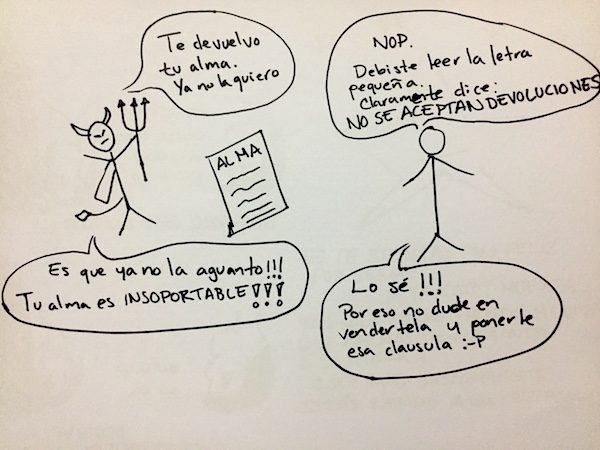 Te devuelvo
tu alma.
Ya no la quiero
NOP.
Debiste leer la letra
pequeña.
Claramente dice:
NO SE ACEPTAN DEVOLUCIONES
ALMA
Es que ya no la aguanto!!!
Tu alma es INSOPORTABLE!!!
Lo sé !!!
Por eso no dude en
vendertela y ponerle
esa clausula :-P